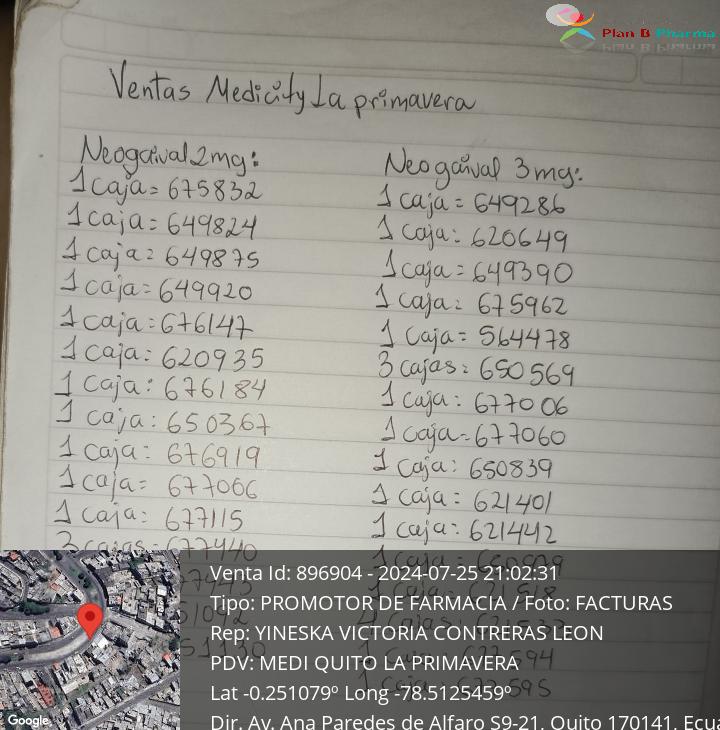 Plan B Pharma
Ventas Medicity La primavera
Neogaival 2mg:
1 caja = 675832
1 caja = 649824
1 caja = 649875
1 caja = 649920
1 caja = 676147
1 caja: 620935
1 caja: 676184
1 caja: 650367
1 caja: 676919
1 caja = 677066
1 caja: 677115
3 cajas = 677440
Neogaival 3mg:
1 caja = 649286
1 caja: 620649
1 caja = 649390
1 caja: 675962
1 caja = 564478
3 cajas: 650569
1 caja: 677006
1 caja = 677060
1 caja: 650839
1 caja: 621401
1 caja: 621442
1 caja:
Venta Id: 896904 - 2024-07-25 21:02:31
Tipo: PROMOTOR DE FARMACIA / Foto: FACTURAS
Rep: YINESKA VICTORIA CONTRERAS LEON
PDV: MEDI QUITO LA PRIMAVERA
Lat -0.251079º Long -78.5125459º
Dir. Av. Ana Paredes de Alfaro S9-21, Quito 170141, Ecua
Google